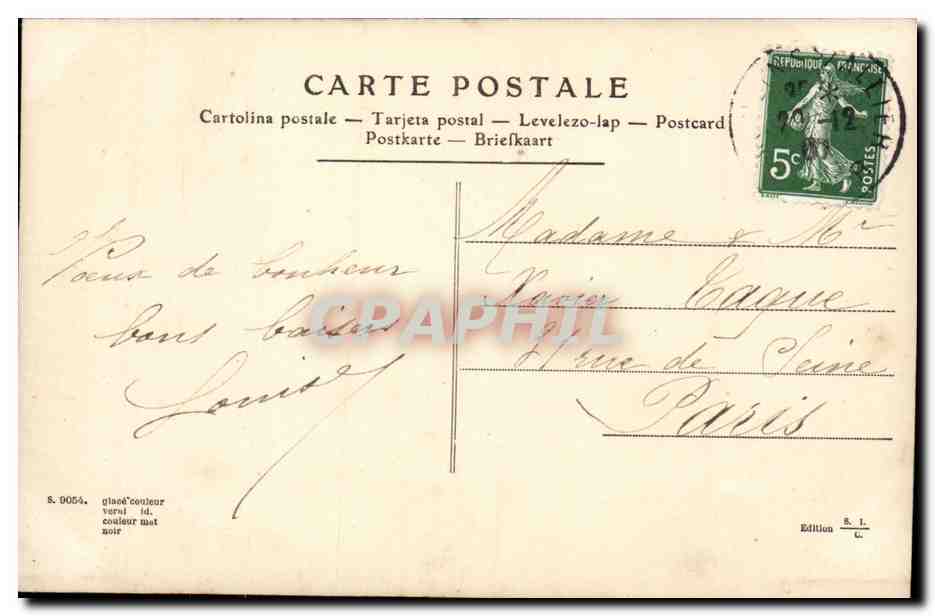 CARTE POSTALE
Cartolina postale — Tarjeta postal — Levelezo-lap — Postcard
Postkarte — Briefkaart
REPUBLIQUE FRANÇAISE
5c
POSTES
Voeux de bonheur
bons baisers
Louise
Madame & Mr
Xavier Tague
rue de Seine
Paris
CPAPHIL
S. 9054. glacé couleur
verni id.
couleur mat
noir
Edition S. I.
C.